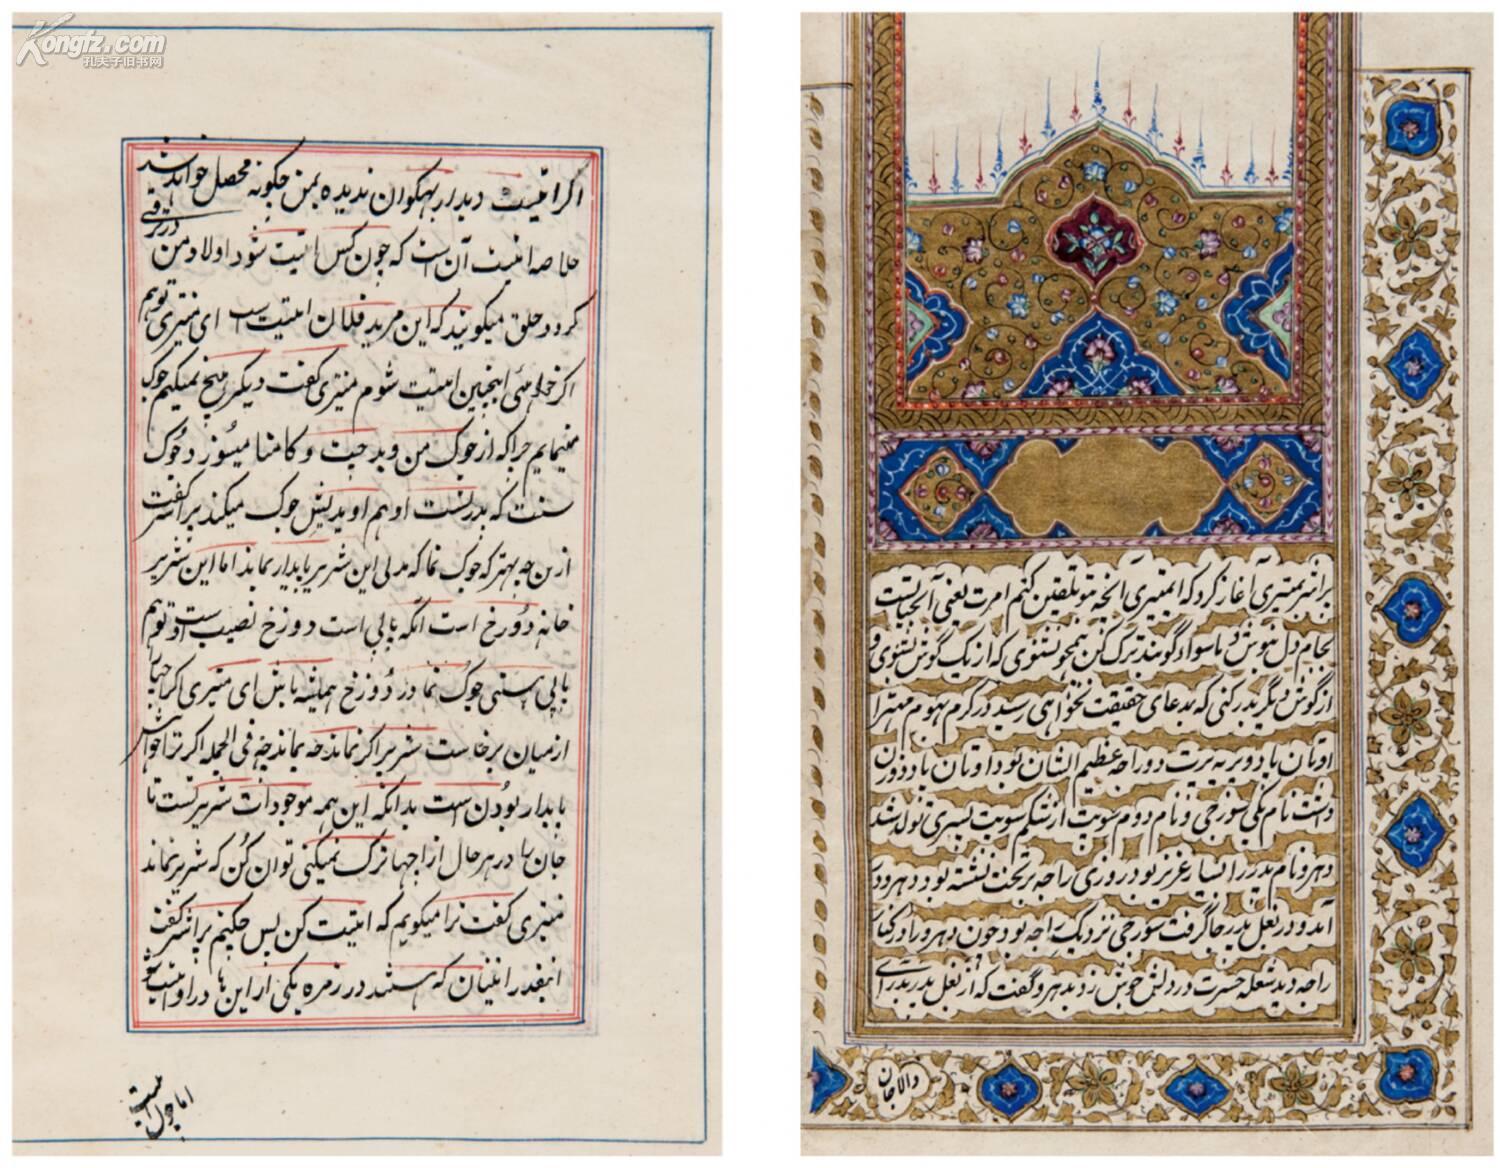 Kongfz.com
孔夫子旧书网
اگر اتیت دیدار بهگوان ندیده بمن چگونه محصل خواند شد
خلاصه اتیت آن است که چون کس اتیت شود اولاد من
کرد و خلق میگویند که این مرید فلان اتیت است ای متیری تو هم
اگر خواهی اینچنین اتیت شوم متیری گفت دیگر هیچ نمیگیم جوک
مینمایم چرا که از جوک من و بد چیت و کامنا میسوزد جوک
سنت که بدر نست او هم اوید نیش جوک میکند پراسر گفت
ازین چه بهتر که جوک نما که بدلی این شریر پایدار نماند اما این شریر
خانه دوزخ است آنکه پاپی است دوزخ نصیب است و تو هم
پاپی هستی جوک نما در دوزخ همیشه باش ای متیری اگر جهان
از میان برخاست شریر اگر نماند چه بماند چه فی الجمله اگر ترا خواهش
پایدار بودن است بدانکه این همه موجودات شریر نیست تا
جان ها در هر حال از اجها ترک نمیکنی توان کن که شریر نماند
متیری گفت ترا میگویم که اتیت کن پس چکنم پراسر گفت
اینقدر اتیتان که هستند در زمره یکی از این ها در او اتیت شو
اما چون اتیت
پراسر بمتیری آغاز کرد که ای متیری آنچه بتو تلقین کنم امرت یعنی آب حیاتست
بجام دل بنوش و ماسوا گویند ترک کن همچو نشنوی که از یک گوش بشنوی و
از گوش دیگر بدر کنی که بدعای حقیقت نخواهی رسید در کرم بهوم مهتر
اوتان پاد و پریه برت دو راجه عظیم الشان بود اوتان پاد دو زن
داشت نام یکی سورجی و نام دوم سونیت از شکم سونیت پسری تولد شد
دهرو نام پدر را بسیار عزیز بود روزی راجه بر تخت نشسته بود دهرو در
آمد و در بغل پدر جا گرفت سورجی نزدیک راجه بود چون دهرو را در کنار
راجه دید شعله حسرت در دلش جوش زد بدهرو گفت که از بغل پدر بدر آی
والا جان